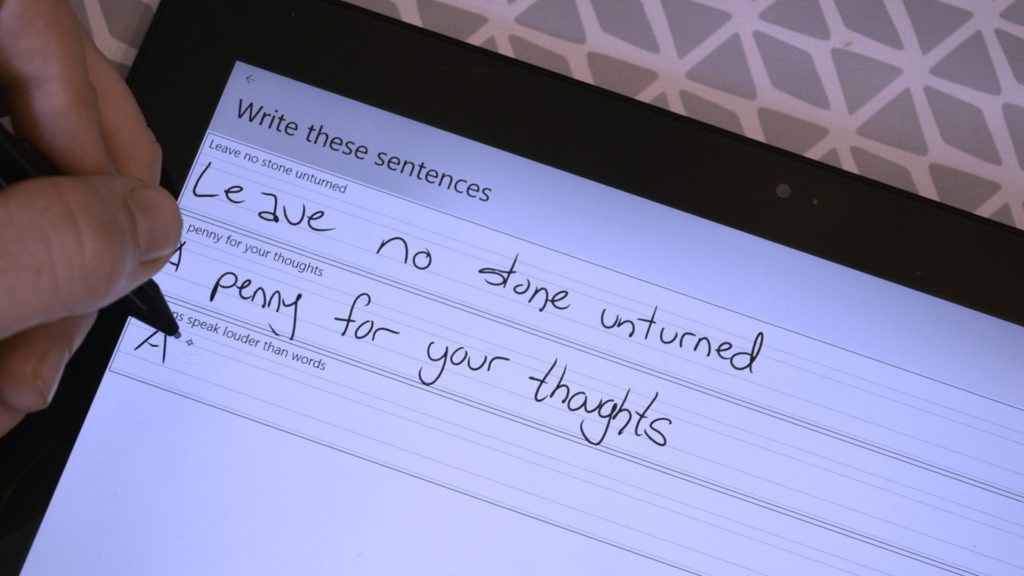 ←
Write these sentences
Leave no stone unturned
Leave no stone unturned
penny for your thoughts
A penny for your thoughts
ns speak louder than words
A